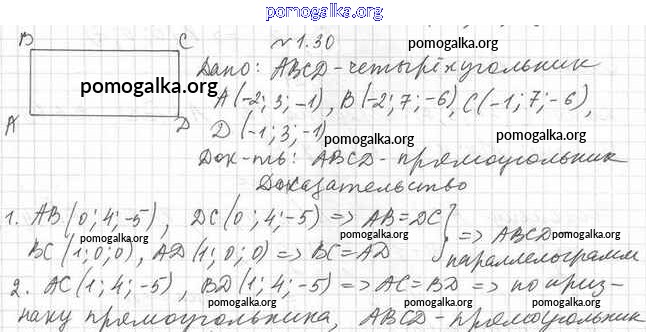 pomogalka.org
B C №1.30
pomogalka.org
Дано: ABCD-четырёхугольник
pomogalka.org
A(-2; 3; -1), B(-2; 7; -6), C(-1; 7; -6),
pomogalka.org
A D D(-1; 3; -1)
pomogalka.org pomogalka.org
Док-ть: ABCD-прямоугольник
Доказательство
1. AB(0; 4; -5), DC(0; 4; -5) => AB=DC
pomogalka.org pomogalka.org pomogalka.org
BC(1; 0; 0), AD(1; 0; 0) => BC=AD } => ABCD параллелограмм
pomogalka.org pomogalka.org
2. AC(1; 4; -5), BD(1; 4; -5) => AC=BD => по приз-
pomogalka.org pomogalka.org
наку прямоугольника, ABCD-прямоугольник
pomogalka.org